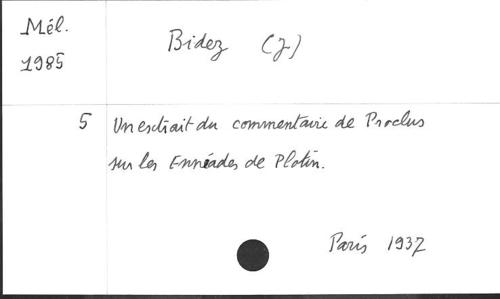 Mél.
1985
Bidez (J)
5 Un extrait du commentaire de Proclus
sur les Ennéades de Plotin.
Paris 1937